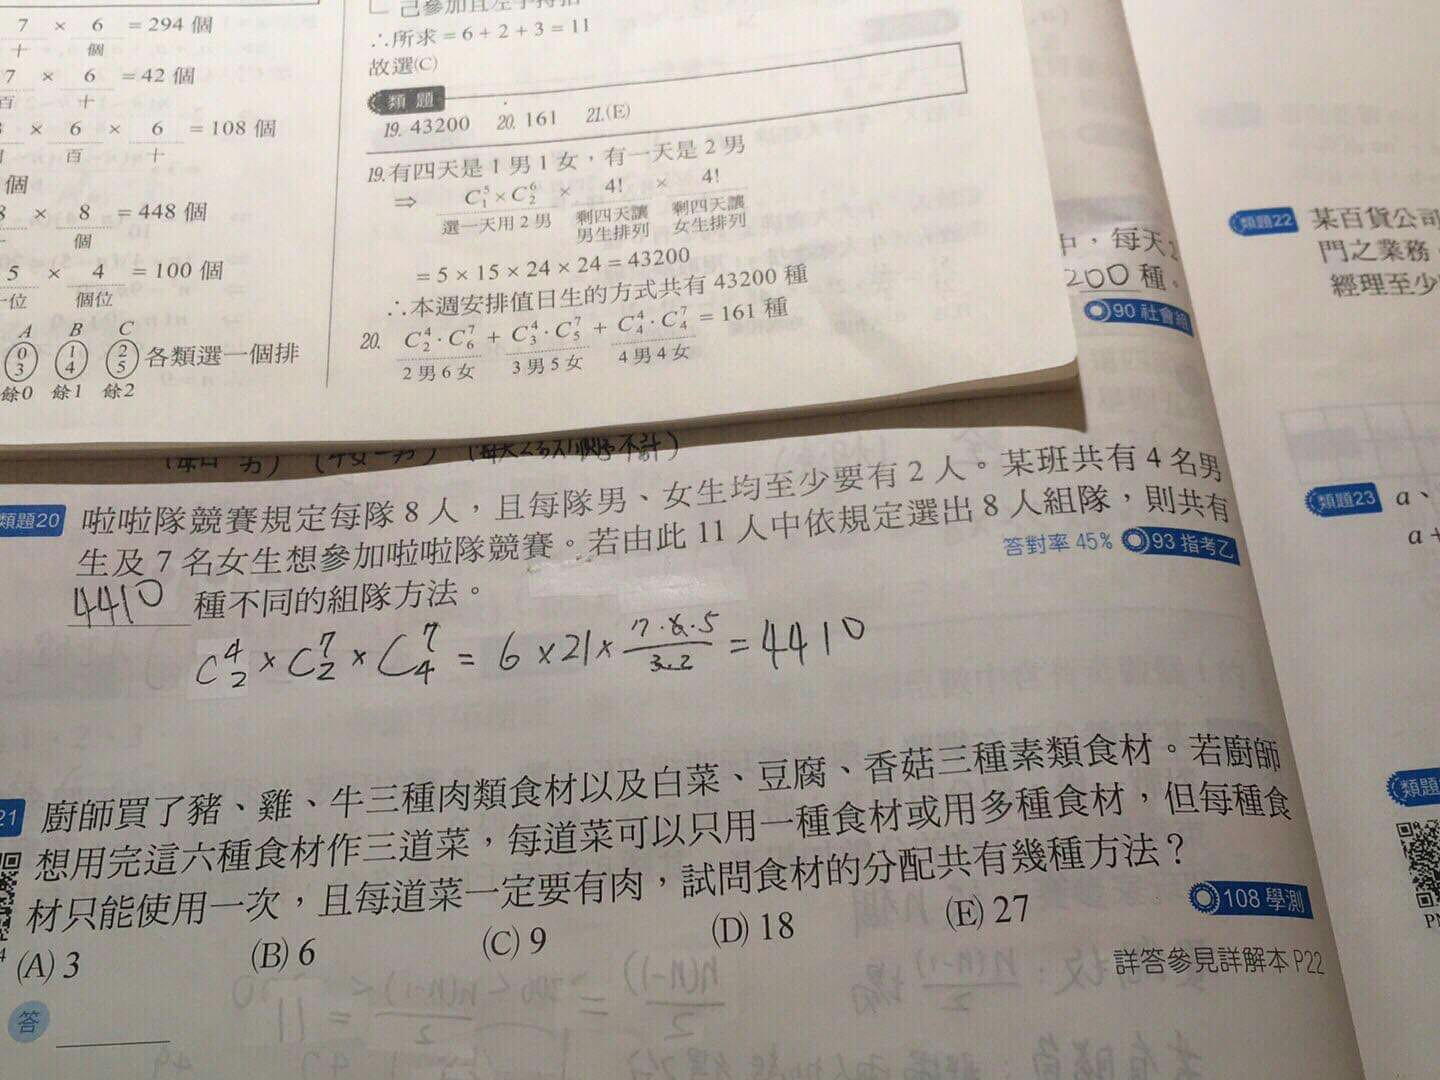 7 × 6 = 294 個
十 個
7 × 6 = 42 個
百 十
× 6 × 6 = 108 個
百 十
個
8 × 8 = 448 個
個
5 × 4 = 100 個
位 個位
A B C
0 3 1 4 2 5 各類選一個排
餘0 餘1 餘2
己參加且左手持拍
∴所求 = 6 + 2 + 3 = 11
故選(C)
類題
19. 43200 20. 161 21.(E)
19.有四天是 1 男 1 女，有一天是 2 男
⇒ C⁵₁ × C⁶₂ × 4! × 4!
選一天用 2 男 剩四天讓男生排列 剩四天讓女生排列
= 5 × 15 × 24 × 24 = 43200
∴本週安排值日生的方式共有 43200 種
20. C⁴₂ · C⁷₆ + C⁴₃ · C⁷₅ + C⁴₄ · C⁷₄ = 161 種
2 男 6 女 3 男 5 女 4 男 4 女
中，每天2
200 種。
90 社會組
類題22 某百貨公司
門之業務，
經理至少
類題20 啦啦隊競賽規定每隊 8 人，且每隊男、女生均至少要有 2 人。某班共有 4 名男
生及 7 名女生想參加啦啦隊競賽。若由此 11 人中依規定選出 8 人組隊，則共有
4410 種不同的組隊方法。
答對率 45% 93 指考乙
C⁴₂ × C⁷₂ × C⁷₄ = 6 × 21 × 7·6·5/3·2 = 4410
類題23 a、
a+
21 廚師買了豬、雞、牛三種肉類食材以及白菜、豆腐、香菇三種素類食材。若廚師
想用完這六種食材作三道菜，每道菜可以只用一種食材或用多種食材，但每種食
材只能使用一次，且每道菜一定要有肉，試問食材的分配共有幾種方法？
108 學測
(A) 3 (B) 6 (C) 9 (D) 18 (E) 27
詳答參見詳解本 P22
答
類題